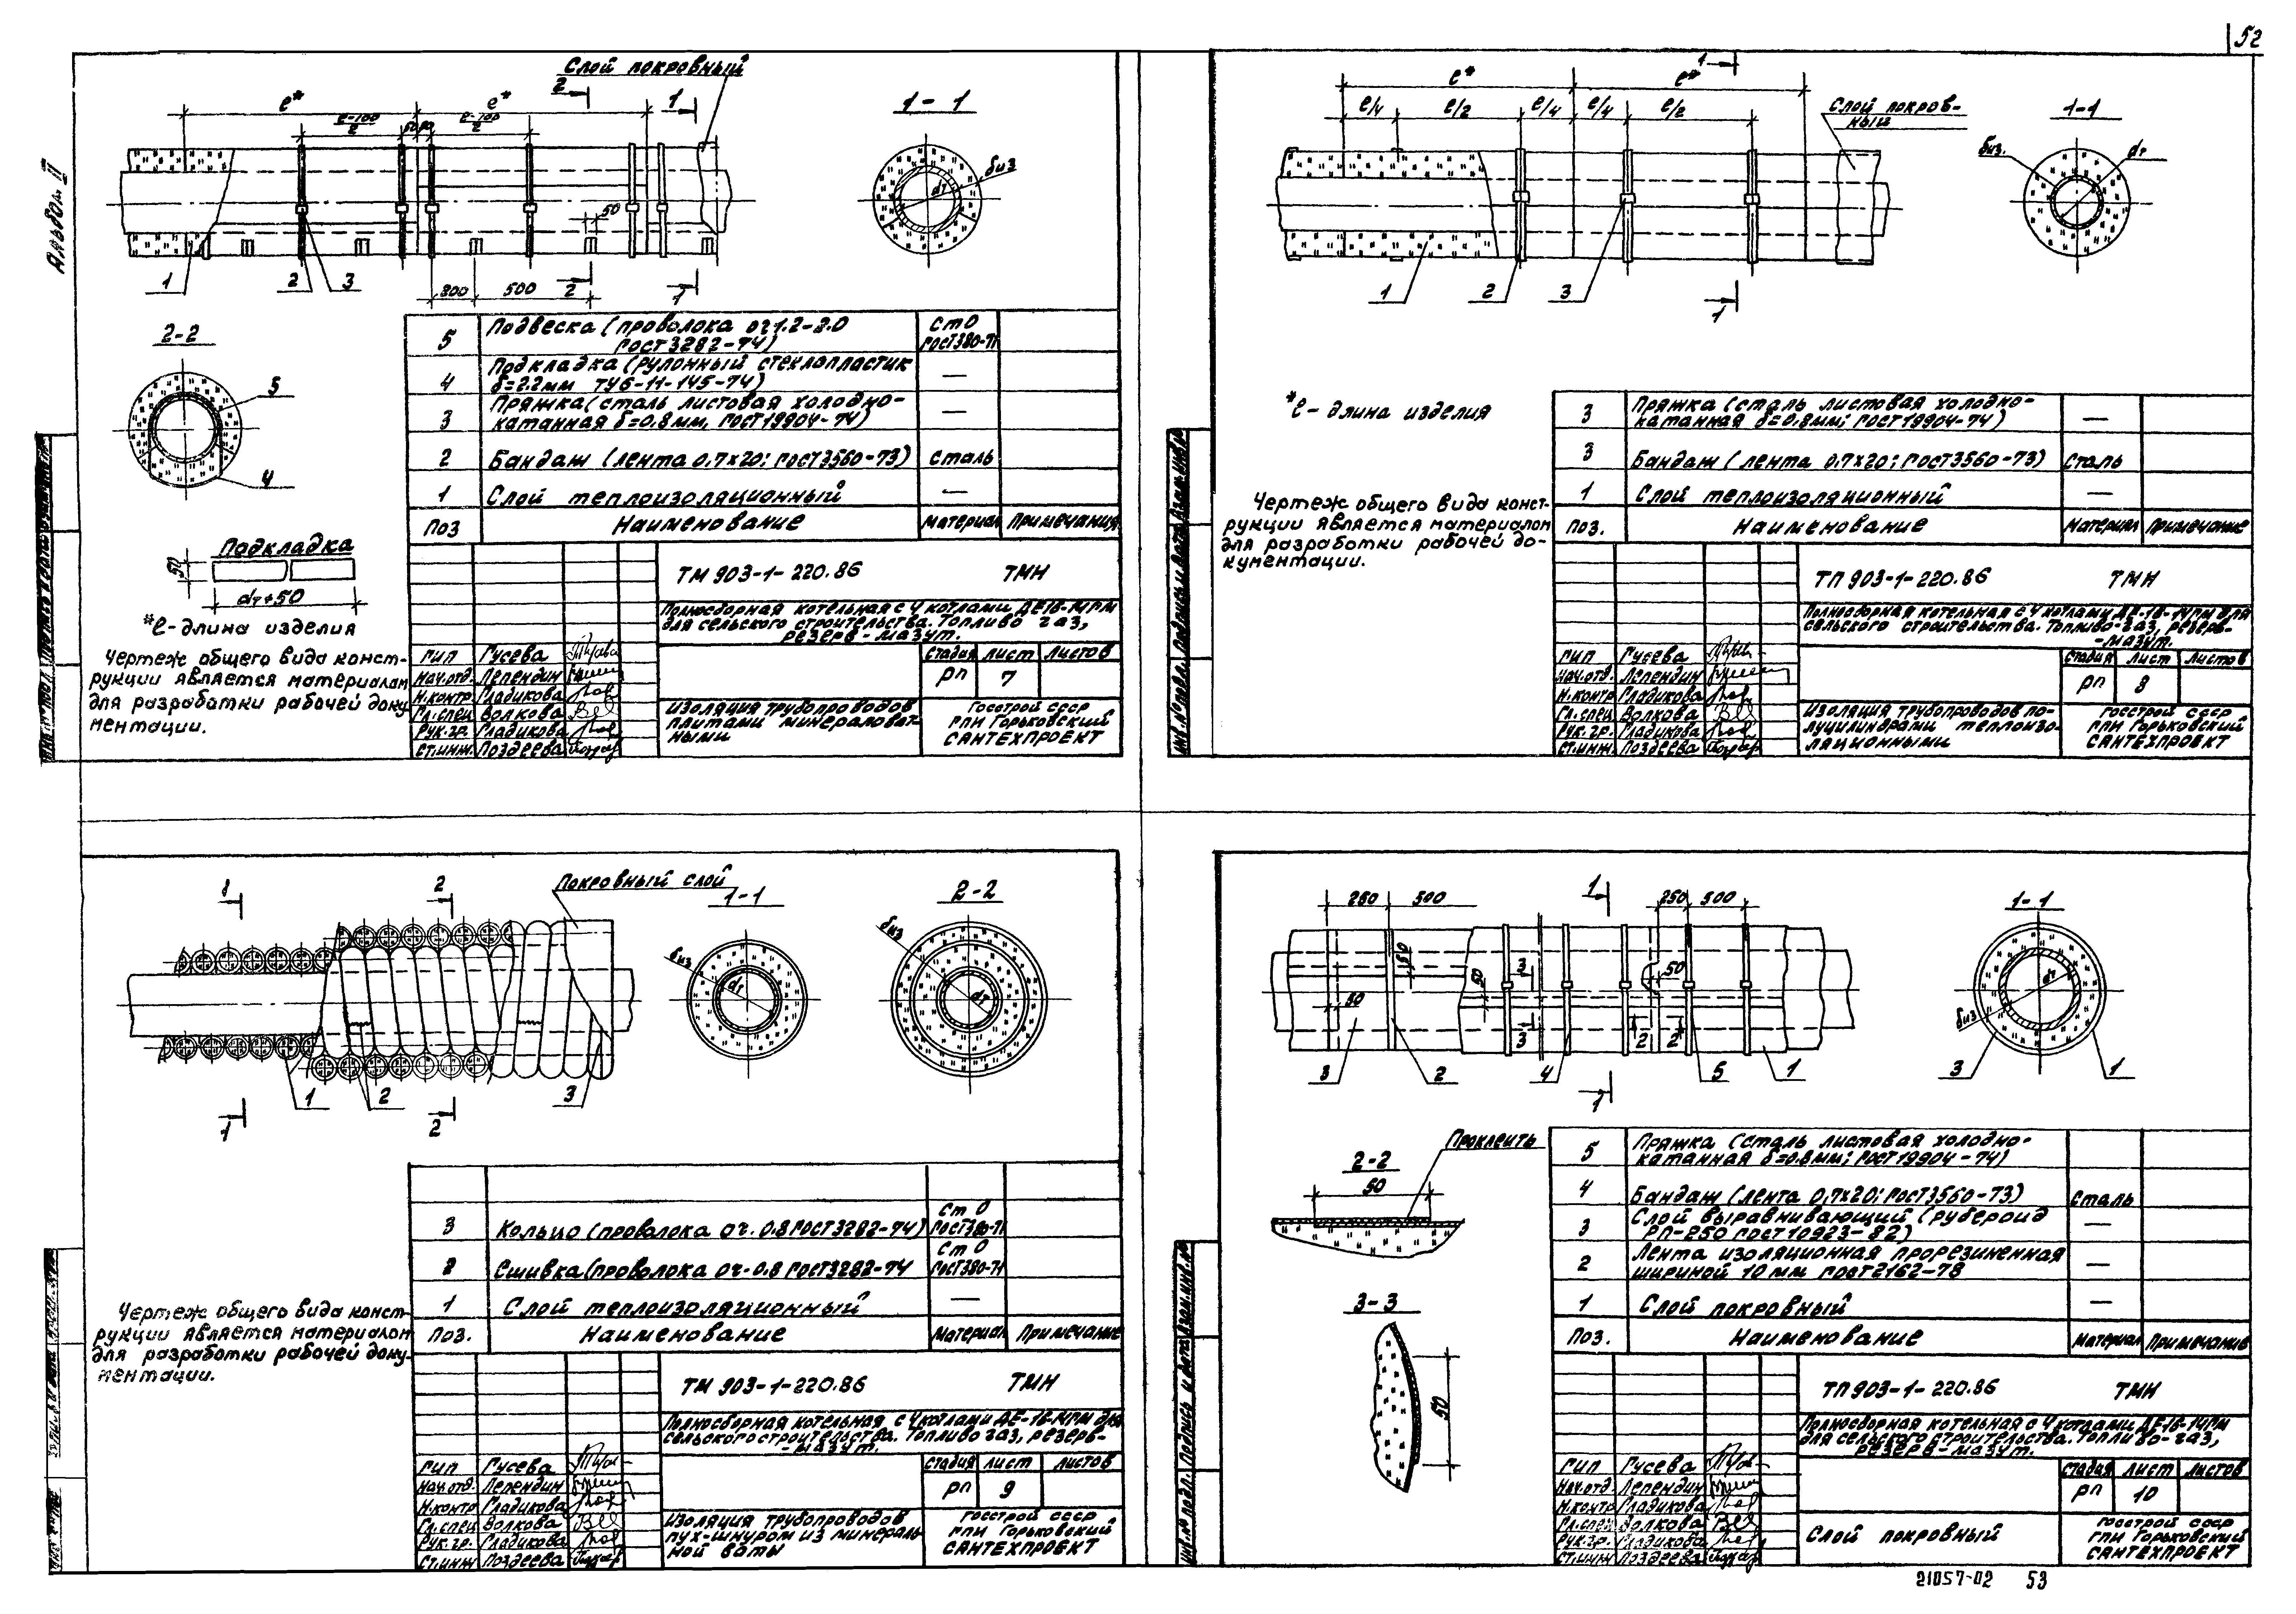 52
Альбом II
Слой покровный
2
1
1-1
ℓ*
ℓ*
ℓ-100
2
50
50
ℓ-100
2
50
δиз
dт
1
2
3
300
500
2
1
2-2
5
4
Подкладка
50
dт+50
*ℓ-длина изделия
Чертеж общего вида конст-
рукции является материалом
для разработки рабочей доку
ментации.
5
Подвеска (проволока оч1.2-2.0
ГОСТ3282-74)
Ст0
ГОСТ380-71
4
Подкладка (рулонный стеклопластик
δ=2.2мм ТУ6-11-145-74)
—
3
Пряжка (сталь листовая холодно-
катанная δ=0.8мм, ГОСТ19904-74)
—
2
Бандаж (лента 0.7х20; ГОСТ3560-73)
Сталь
1
Слой теплоизоляционный
—
Поз
Наименование
Материал
Примечания
ТМ 903-1-220.86
ТМН
Полносборная котельная с 4 котлами ДЕ16-14ГМ
для сельского строительства. Топливо газ,
резерв-мазут.
ГИП Гусева
Нач.отд. Лепендин
Н.контр Гладикова
Гл.спец Волкова
Рук.гр. Гладикова
Ст.инж. Поздеева
Стадия
Лист
Листов
РП
7
Изоляция трубопроводов
плитами минераловат-
ными
Госстрой СССР
ГПИ Горьковский
САНТЕХПРОЕКТ
ℓ*
ℓ*
1
ℓ/4
ℓ/2
ℓ/4
ℓ/4
ℓ/2
Слой покров-
ный
1-1
δиз.
dт
1
2
3
1
*ℓ- длина изделия
Чертеж общего вида конст-
рукции является материалом
для разработки рабочей до-
кументации.
3
Пряжка (сталь листовая холодно-
катанная δ=0.8мм; ГОСТ19904-74)
—
3
Бандаж (лента 0.7х20; ГОСТ3560-73)
Сталь
1
Слой теплоизоляционный
—
Поз.
Наименование
Материал
Примечание
ТП 903-1-220.86
ТМН
Полносборная котельная с 4 котлами ДЕ-16-14ГМ для
сельского строительства. Топливо-газ, резерв-
-мазут.
ГИП Гусева
Нач.отд. Лепендин
Н.контр Гладикова
Гл.спец Волкова
Рук.гр. Гладикова
Ст.инж. Поздеева
Стадия
Лист
Листов
РП
8
Изоляция трубопроводов по-
луцилиндрами теплоизо-
ляционными
Госстрой СССР
ГПИ Горьковский
САНТЕХПРОЕКТ
Инв.№подл.
Подпись и дата
Взам.инв.№
1
2
Покровный слой
1-1
2-2
δиз
dт
δиз
dт
1
2
3
1
2
Чертеж общего вида конст-
рукции является материалом
для разработки рабочей доку-
ментации.
3
Кольцо (проволока оч. 0.8 ГОСТ3282-74)
Ст 0
ГОСТ380-71
2
Сшивка (проволока оч-0.8 ГОСТ3282-74
Ст 0
ГОСТ380-71
1
Слой теплоизоляционный
—
Поз.
Наименование
Материал
Примечание
ТМ 903-1-220.86
ТМН
Полносборная котельная с 4 котлами ДЕ-16-14ГМ для
сельского строительства. Топливо газ, резерв-
-мазут.
ГИП Гусева
Нач.отд. Лепендин
Н.контр Гладикова
Гл.спец Волкова
Рук.гр. Гладикова
Ст.инж Поздеева
Стадия
Лист
Листов
РП
9
Изоляция трубопроводов
пух-шнуром из минераль
ной ваты
Госстрой СССР
ГПИ Горьковский
САНТЕХПРОЕКТ
250
500
1
250
500
1-1
50
50
50
50
3
3
2
2
3
2
4
5
1
1
dт
δиз
3
1
2-2
50
Проклеить
3-3
50
5
Пряжка (сталь листовая холодно-
катанная δ=0.8мм; ГОСТ19904-74)
4
Бандаж (лента 0,7х20; ГОСТ3560-73)
Сталь
3
Слой выравнивающий (рубероид
РП-250 ГОСТ10923-82)
—
2
Лента изоляционная прорезиненная
шириной 10 мм ГОСТ2162-78
—
1
Слой покровный
—
Поз.
Наименование
Материал
Примечание
ТП 903-1-220.86
ТМН
Полносборная котельная с 4 котлами ДЕ-16-14ГМ
для сельского строительства. Топливо-газ,
резерв-мазут.
ГИП Гусева
Нач.отд. Лепендин
Н.контр Гладикова
Гл.спец Волкова
Рук.гр. Гладикова
Ст.инж Поздеева
Стадия
Лист
Листов
РП
10
Слой покровный
Госстрой СССР
ГПИ Горьковский
САНТЕХПРОЕКТ
Инв.№ подл.
Подпись и дата
Взам.инв.№
21057-02 53